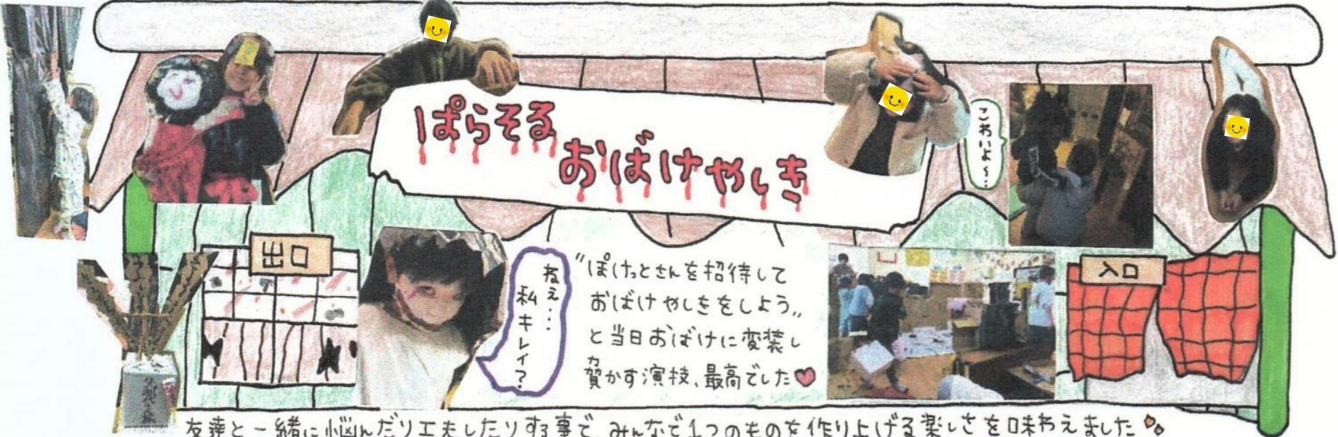 ぱらそる
おばけやしき
こわいよ～…
出口
ねぇ…
私キレイ？
"ぽけっとさんを招待して
おばけやしきをしよう"
と当日おばけに変装し
驚かす演技、最高でした♥
入口
友達と一緒に悩んだり工夫したりする事で、みんなで1つのものを作り上げる楽しさを味わえました